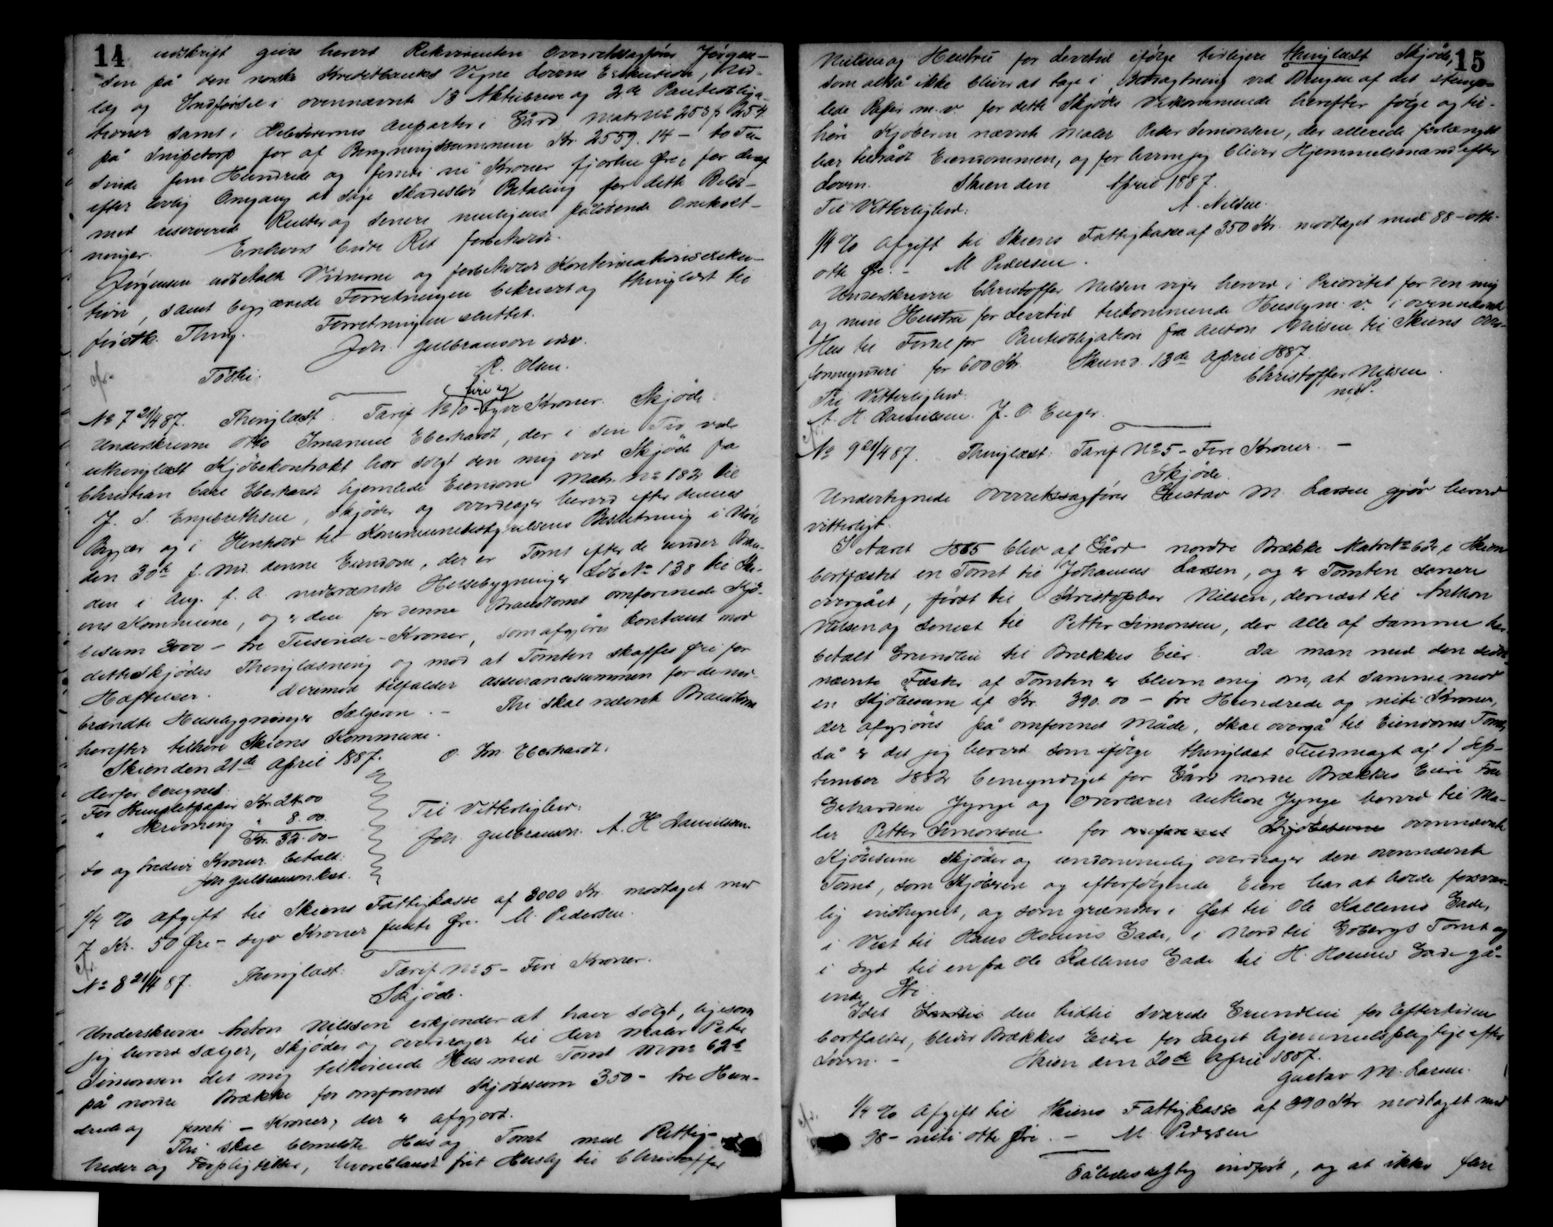 14
udskrift gives herved Rekvirenten Overretssagfører Jørgen-
sen på den norske Kreditbanks Vegne Lovens Exekution, Ud-
læg og Indførsel i ovennævnte 13 Aktiebreve og 2de Panteobliga-
tioner samt i Debitorernes Anparter i Gård Matr No 253 & 254
på Snipetorp for af Bevgningssummen Kr. 2559.14 – to Tu-
sinde fem Hundrede og femti ni Kroner fjorten Øre, for deraf
efter lovlig Omgang at søge skadesløs Betaling for dette Belø-
med reserverede Renter og senere muligens påløbende Omkost-
ninger. Enhvers bedre Ret forbeholdt.
Jørgensen udbetalte Vidnerne og forbeholdt Kontinuationsexeku-
tion, samt begjærede Forretningen beskrevet og thinglæst til
første Thing. Forretningen sluttet.
Joh Gulbranson edsv.
Tostri: R. Olsen.
No 7 21/4 87. Thinglæst. Tarif No 10 fire og tyve Kroner. Skjøde:
Underskrevne Otto Imanuel Eberhardt, der i sin Tid ved
uthinglæst Kjøbekontrakt har solgt den mig ved Skjøde fra
Christian Carl Eberhardt hjemlede Eiendom Matr. No 182 til
J. S. Engebrethsen, skjøder og overdrager herved efter dennes
Begjær og i Henhold til Kommunebestyrelsens Beslutning i Møde
den 30te f. Md. denne Eiendom, der er Tomt efter de under Bran-
den i Aug. f. A. nedbrændte Husebygninger Løb No 138 til Ski-
ens Kommune, og er den for denne Brandtomt omforenede Kjø-
besum 3000 – tre Tusende – Kroner, som afgjøres kontant mod
dette Skjødes Thinglæsning og mod at Tomten skaffes fri for
Hæftelser. Derimod tilfalder Assurancesummen for de ned-
brændte Husebygninger Sælgeren. – Thi skal nævnte Brandtomt
herefter tilhøre Skiens Kommune.
Skien den 21de April 1887. O Im Eberhardt.
derfor beregnet:
For Stempletpapir Kr. 24.00
" Skrivning " 8.00
Kr. 32.00
to og tredive Kroner betalt:
Joh Gulbranson kst.
Til Vitterlighed:
Joh Gulbranson. A. H. Danielsen.
1/4 % Afgift til Skiens Fattigkasse af 3000 Kr. modtaget med
7 Kr. 50 Øre – syv Kroner femti Øre. M. Pedersen.
No 8 21/4 87. Thinglæst. Tarif No 5 – Fire Kroner.
Skjøde.
Underskrevne Anton Nilssen erkjender at have solgt, ligesom
jeg herved sælger, skjøder og overdrager til Herr Maler Peter
Simonsen det mig tilhørende Hus med Tomt M No 62 d
på nordre Brække for omforenet Kjøbesum 350 – tre Hun-
drede og femti – Kroner, der er afgjort.
Thi skal bemeldte Hus og Tomt med Rettig-
heder og Forpligtelser, hvoriblandt frit Husly til Christoffer
15
Nielsen og Hustru for Levetid ifølge tidligere thinglæst Skjøde,
som altså ikke bliver at tage i Betragtning ved Brugen af det stemp-
lede Papir m. v. for dette Skjødes Vedkommende herefter følge og til-
høre Kjøberen nævnte Maler Peder Simonsen, der allerede forlængst
har tiltrådt Eiendommen, og for hvem jeg bliver Hjemmelsmand efter
Loven. Skien den April 1887.
Til Vitterlighed: A. Nilsen.
1/4 % Afgift til Skiens Fattigkasse af 350 Kr. modtaget med 88 – otti-
otte Øre. – M Pedersen.
Underskrevne Christoffer Nilsen viger herved i Prioritet for den mig
og min Hustru for Levetid tilkommende Husly m. v. i ovennævnte
Hus til Fordel for Panteobligation fra Anton Nilsen til Skiens Over-
formynderi for 600 Kr. Skien d. 13de April 1887.
Til Vitterlighed: Christoffer Nilsen
A. H. Danielsen. J. O. Enger. mdP.
No 9 21/4 87. Thinglæst. Tarif No 5 – Fire Kroner. –
Skjøde.
Undertegnede Overretssagfører Gustav M. Larsen gjør herved
vitterligt:
I Aaret 1865 blev af Gård nordre Brække Matr No 62 i Skien
bortfæstet en Tomt til Johannes Larsen, og er Tomten senere
overgået, først til Kristopher Nilsen, dernæst til Anthon
Nilsen og senest til Petter Simonsen, der Alle af samme har
betalt Grundleie til Brækkes Eier. Da man med den sidst-
nævnte Fæster af Tomten er bleven enig om, at samme mod
en Kjøbesum af Kr. 390.00 – tre Hundrede og niti Kroner,
der afgjøres på omforenet Måde, skal overgå til Eiendoms Tomt,
så er det jeg herved som ifølge thinglæst Fuldmagt af 1 Sep-
tember 1882 bemyndiget for Gård nordre Brækkes Eiere Fru
Gerhardine Jynge og Overlærer Anthon Jynge herved til Ma-
ler Petter Simonsen for omforenet Kjøbesum ovennævnte
Kjøbesum skjøder og uendommelig overdrager den ovennævnte
Tomt, som Kjøberen og efterfølgende Eiere har at holde forsvar-
lig indhegnet, og som grændser i Øst til Ole Kallenes Gade,
i Vest til Hans Houens Gade, i Nord til Gobergs Tomt og
i Syd til en fra Ole Kallenes Gade til H. Houens Gade gå-
ende Sti.
Idet den hidtil svarede Grundleie for Eftertiden
bortfalder, bliver Brækkes Eiere for Salget hjemmelspligtige efter
Loven. – Skien den 20de April 1887.
Gustav M. Larsen.
1/4 % Afgift til Skiens Fattigkasse af 390 Kr. modtaget med
98 – niti otte Øre. – M. Pedersen
Således rigtig indført, og at ikke flere